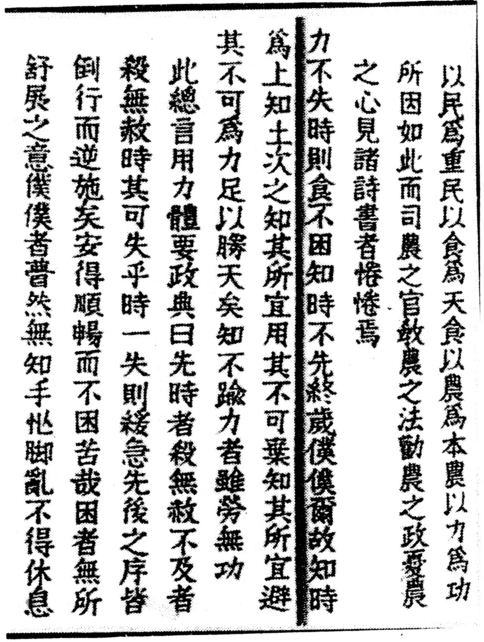 以民爲重民以食爲天食以農爲本農以力爲功
所因如此而司農之官敎農之法勸農之政憂農
之心見諸詩書者惓惓焉
力不失時則食不困知時不先終歲僕僕爾故知時
爲上知土次之知其所宜用其不可棄知其所宜避
其不可爲力足以勝天矣知不踰力者雖勞無功
此總言用力體要政典曰先時者殺無赦不及者
殺無赦時其可失乎時一失則緩急先後之序皆
倒行而逆施矣安得順暢而不困苦哉困者無所
舒展之意僕僕者瞢然無知手忙脚亂不得休息